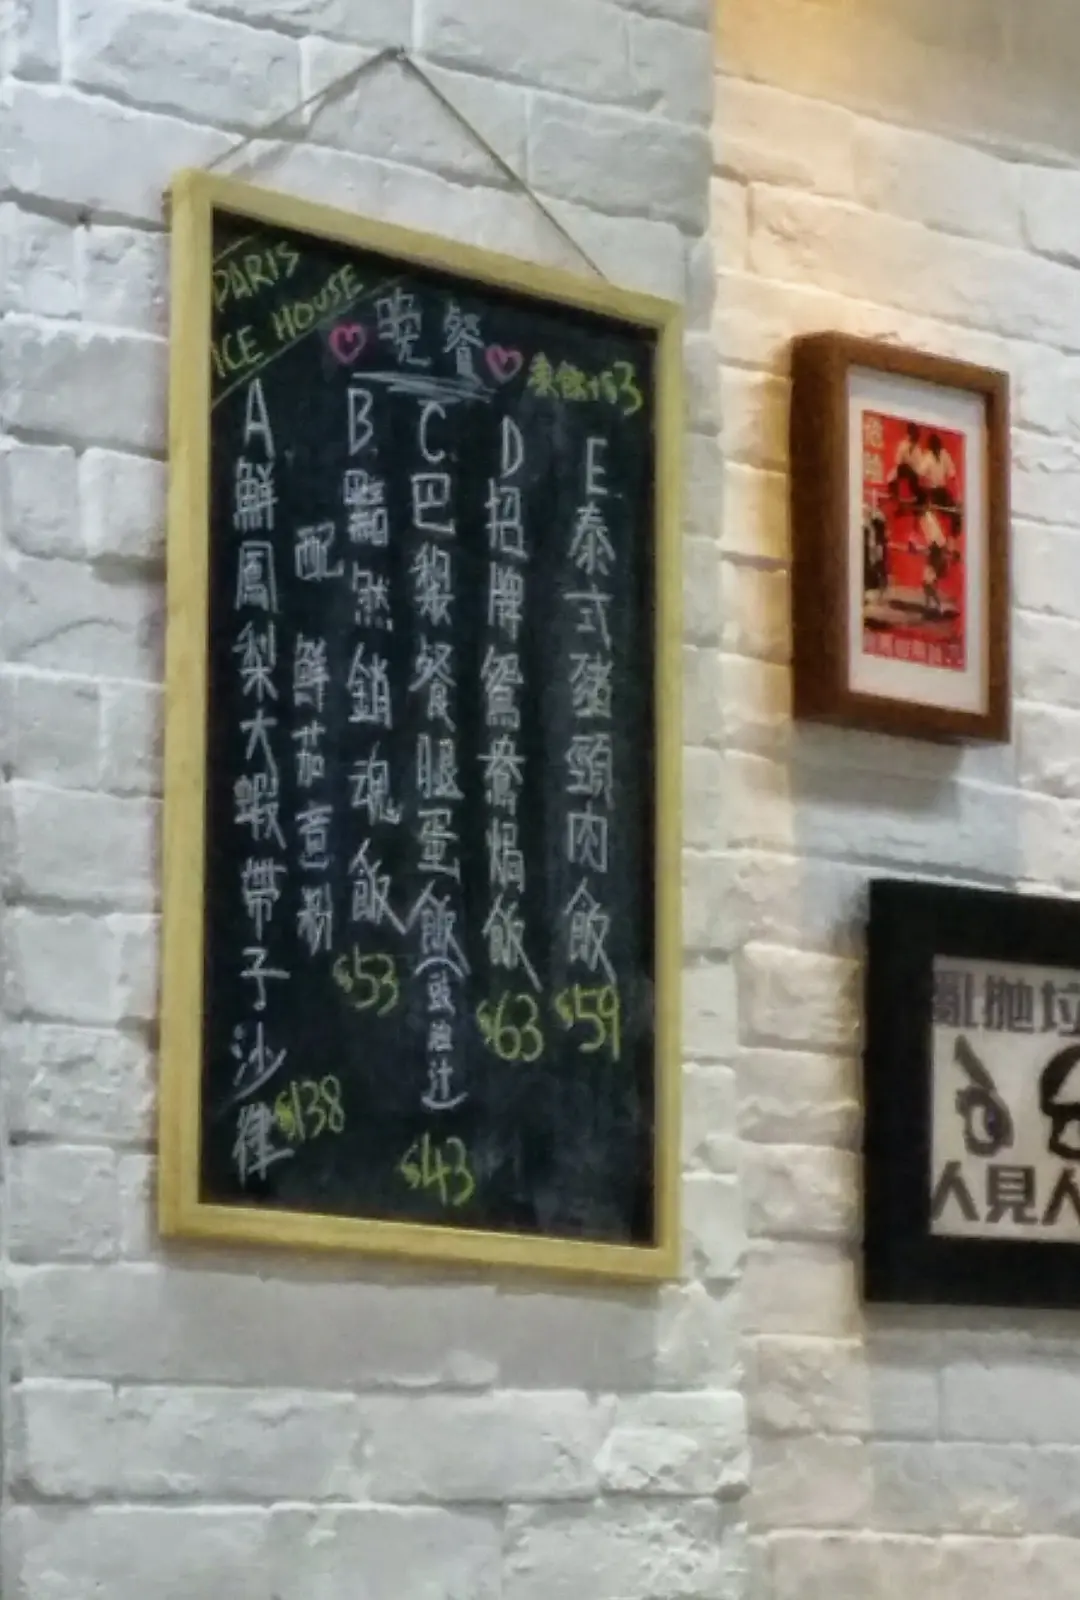 PARIS
ICE HOUSE
晚餐
凍飲+$3
A 鮮鳳梨大蝦帶子沙律
配鮮茄意粉
$138
B 黯然銷魂飯
$53
C 巴黎餐腿蛋飯(豉油汁)
$43
D 招牌鴛鴦焗飯
$63
E 泰式豬頸肉飯
$59
亂拋垃
人見人